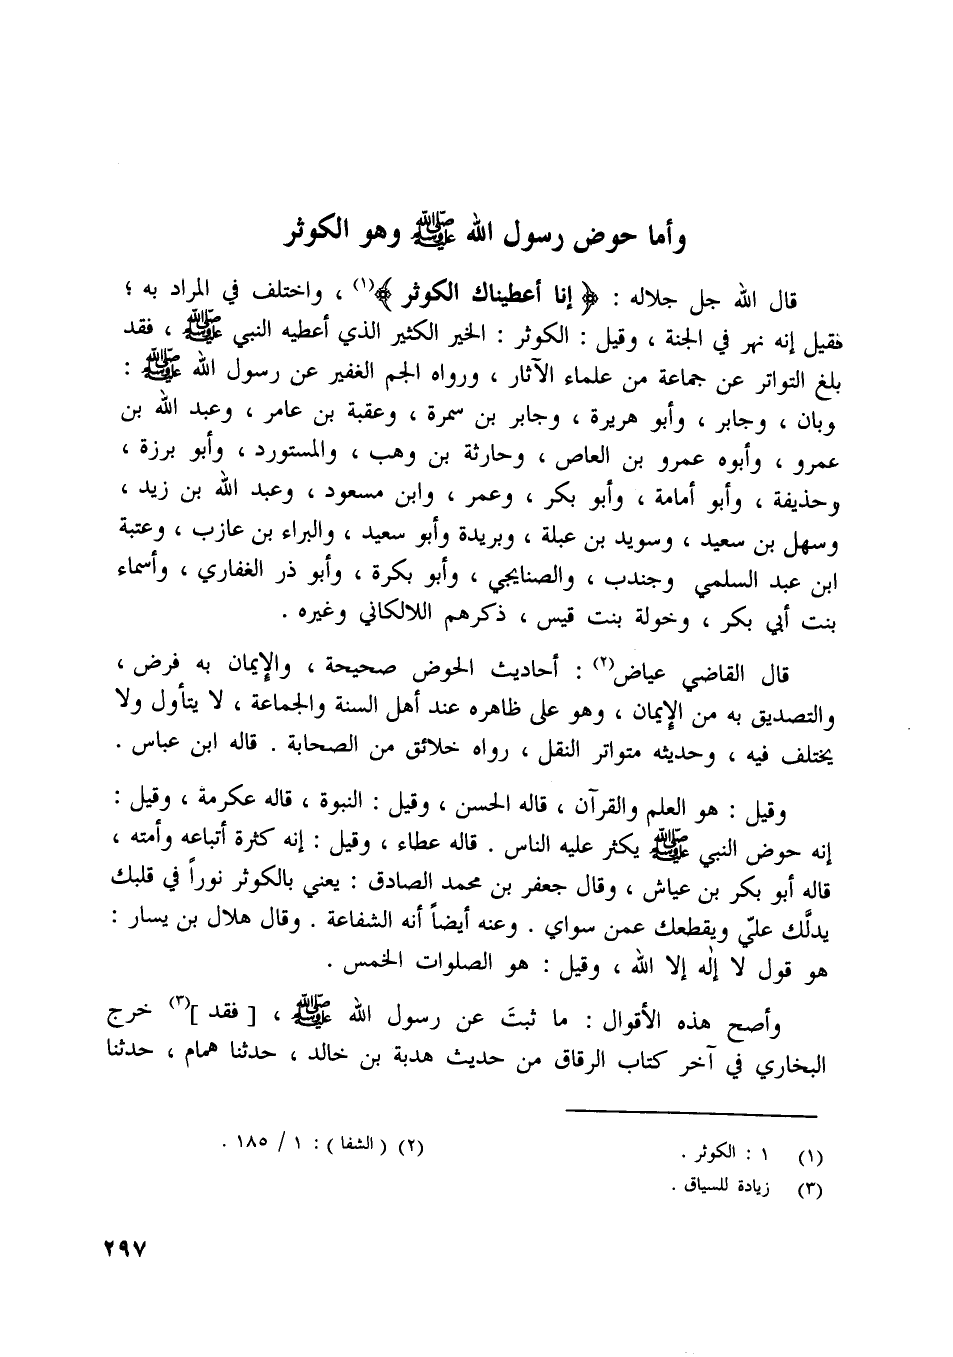 وأما حوض رسول الله ﷺ وهو الكوثر
قال الله جل جلاله : ﴿ إنا أعطيناك الكوثر ﴾(١) ، واختلف في المراد به ؛
فقيل إنه نهر في الجنة ، وقيل : الكوثر : الخير الكثير الذي أعطيه النبي ﷺ ، فقد
بلغ التواتر عن جماعة من علماء الآثار ، ورواه الجم الغفير عن رسول الله ﷺ :
وبان ، وجابر ، وأبو هريرة ، وجابر بن سمرة ، وعقبة بن عامر ، وعبد الله بن
عمرو ، وأبوه عمرو بن العاص ، وحارثة بن وهب ، والمستورد ، وأبو برزة ،
وحذيفة ، وأبو أمامة ، وأبو بكر ، وعمر ، وابن مسعود ، وعبد الله بن زيد ،
وسهل بن سعيد ، وسويد بن عبلة ، وبريدة وأبو سعيد ، والبراء بن عازب ، وعتبة
ابن عبد السلمي وجندب ، والصنايجي ، وأبو بكرة ، وأبو ذر الغفاري ، وأسماء
بنت أبي بكر ، وخولة بنت قيس ، ذكرهم اللالكاني وغيره .
قال القاضي عياض(٢) : أحاديث الحوض صحيحة ، والإيمان به فرض ،
والتصديق به من الإيمان ، وهو على ظاهره عند أهل السنة والجماعة ، لا يتأول ولا
يختلف فيه ، وحديثه متواتر النقل ، رواه خلائق من الصحابة . قاله ابن عباس .
وقيل : هو العلم والقرآن ، قاله الحسن ، وقيل : النبوة ، قاله عكرمة ، وقيل :
إنه حوض النبي ﷺ يكثر عليه الناس . قاله عطاء ، وقيل : إنه كثرة أتباعه وأمته ،
قاله أبو بكر بن عياش ، وقال جعفر بن محمد الصادق : يعني بالكوثر نوراً في قلبك
يدلَّك عليّ ويقطعك عمن سواي . وعنه أيضاً أنه الشفاعة . وقال هلال بن يسار :
هو قول لا إله إلا الله ، وقيل : هو الصلوات الخمس .
وأصح هذه الأقوال : ما ثبتَ عن رسول الله ﷺ ، [ فقد ](٣) خرج
البخاري في آخر كتاب الرقاق من حديث هدبة بن خالد ، حدثنا همام ، حدثنا
(١) ١ : الكوثر . (٢) ( الشفا ) : ١ / ١٨٥ .
(٣) زيادة للسياق .
٢٩٧